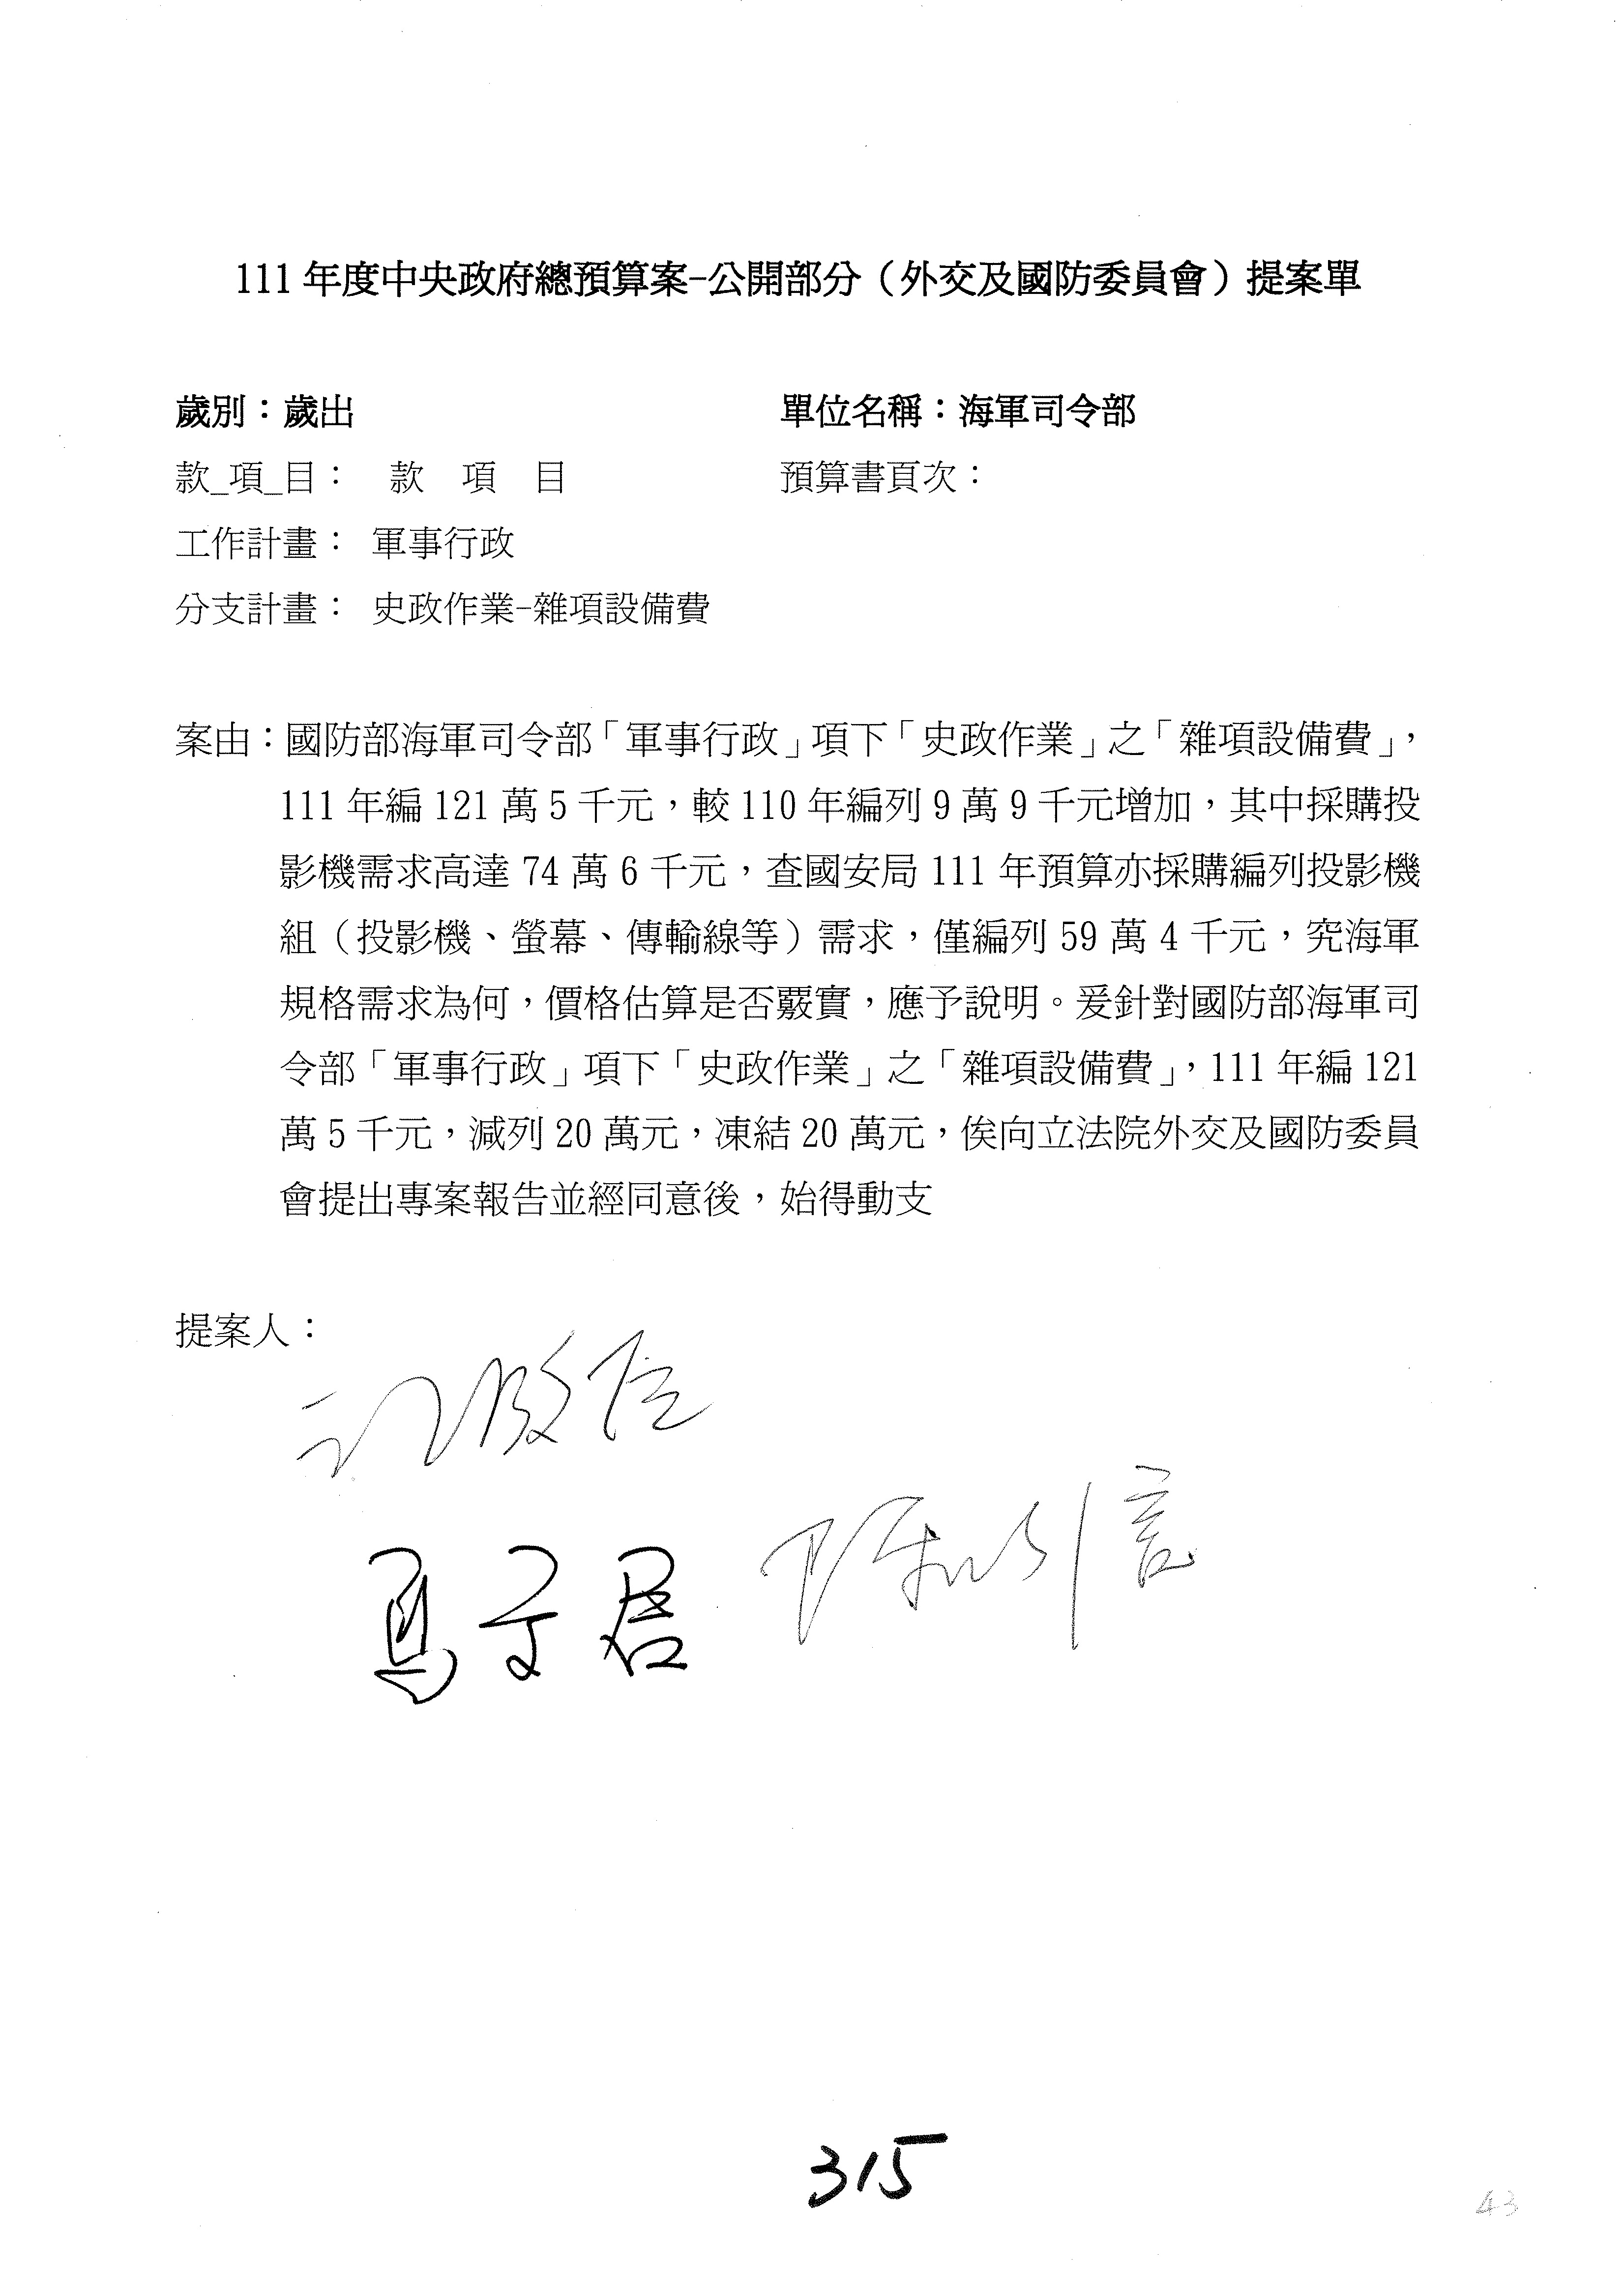 111 年度中央政府總預算案-公開部分（外交及國防委員會）提案單
歲別：歲出 單位名稱：海軍司令部
款_項_目： 款 項 目 預算書頁次：
工作計畫： 軍事行政
分支計畫： 史政作業-雜項設備費
案由：國防部海軍司令部「軍事行政」項下「史政作業」之「雜項設備費」，
111 年編 121 萬 5 千元，較 110 年編列 9 萬 9 千元增加，其中採購投
影機需求高達 74 萬 6 千元，查國安局 111 年預算亦採購編列投影機
組（投影機、螢幕、傳輸線等）需求，僅編列 59 萬 4 千元，究海軍
規格需求為何，價格估算是否覈實，應予說明。爰針對國防部海軍司
令部「軍事行政」項下「史政作業」之「雜項設備費」，111 年編 121
萬 5 千元，減列 20 萬元，凍結 20 萬元，俟向立法院外交及國防委員
會提出專案報告並經同意後，始得動支
提案人：
馬文君
315
43